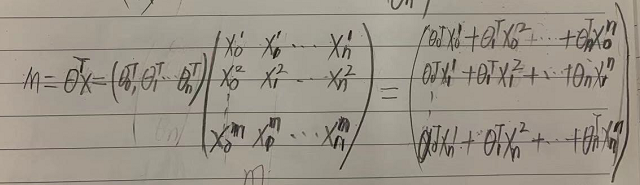 m = θᵀx = (θ₀ᵀ, θ₁ᵀ ⋯ θₙᵀ) ( x₀¹ x₁¹ ⋯ xₙ¹ ; x₀² x₁² ⋯ xₙ² ; ⋮ ; x₀ᵐ x₁ᵐ ⋯ xₙᵐ ) = ( θ₀ᵀx₀¹ + θ₁ᵀx₀² + ⋯ + θₙᵀx₀ᵐ ; θ₀ᵀx₁¹ + θ₁ᵀx₁² + ⋯ + θₙx₁ᵐ ; ⋮ ; θ₀ᵀxₙ¹ + θ₁ᵀxₙ² + ⋯ + θₙᵀxₙᵐ )